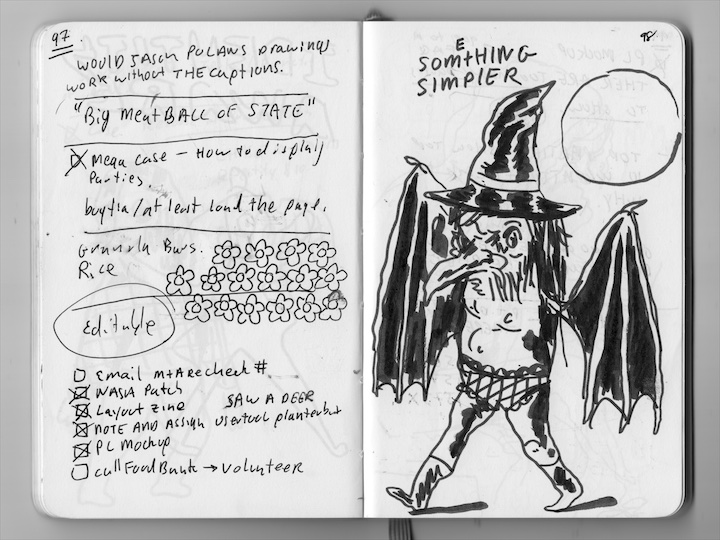 97.
WOULD JASON POLANS DRAWINGS
WORK WITHOUT THE CAPTIONS.
"Big MeatBALL OF STATE"
Mega Case – How to display
Parties.
/at least land the page.
Granola Bars.
Rice
Editable
Email recheck #
NASA Patch
Layout zine
SAW A DEER
NOTE AND Assign usertool
PL Mockup
call Food Bank → Volunteer
98
E
SOMtHING
SIMPLER